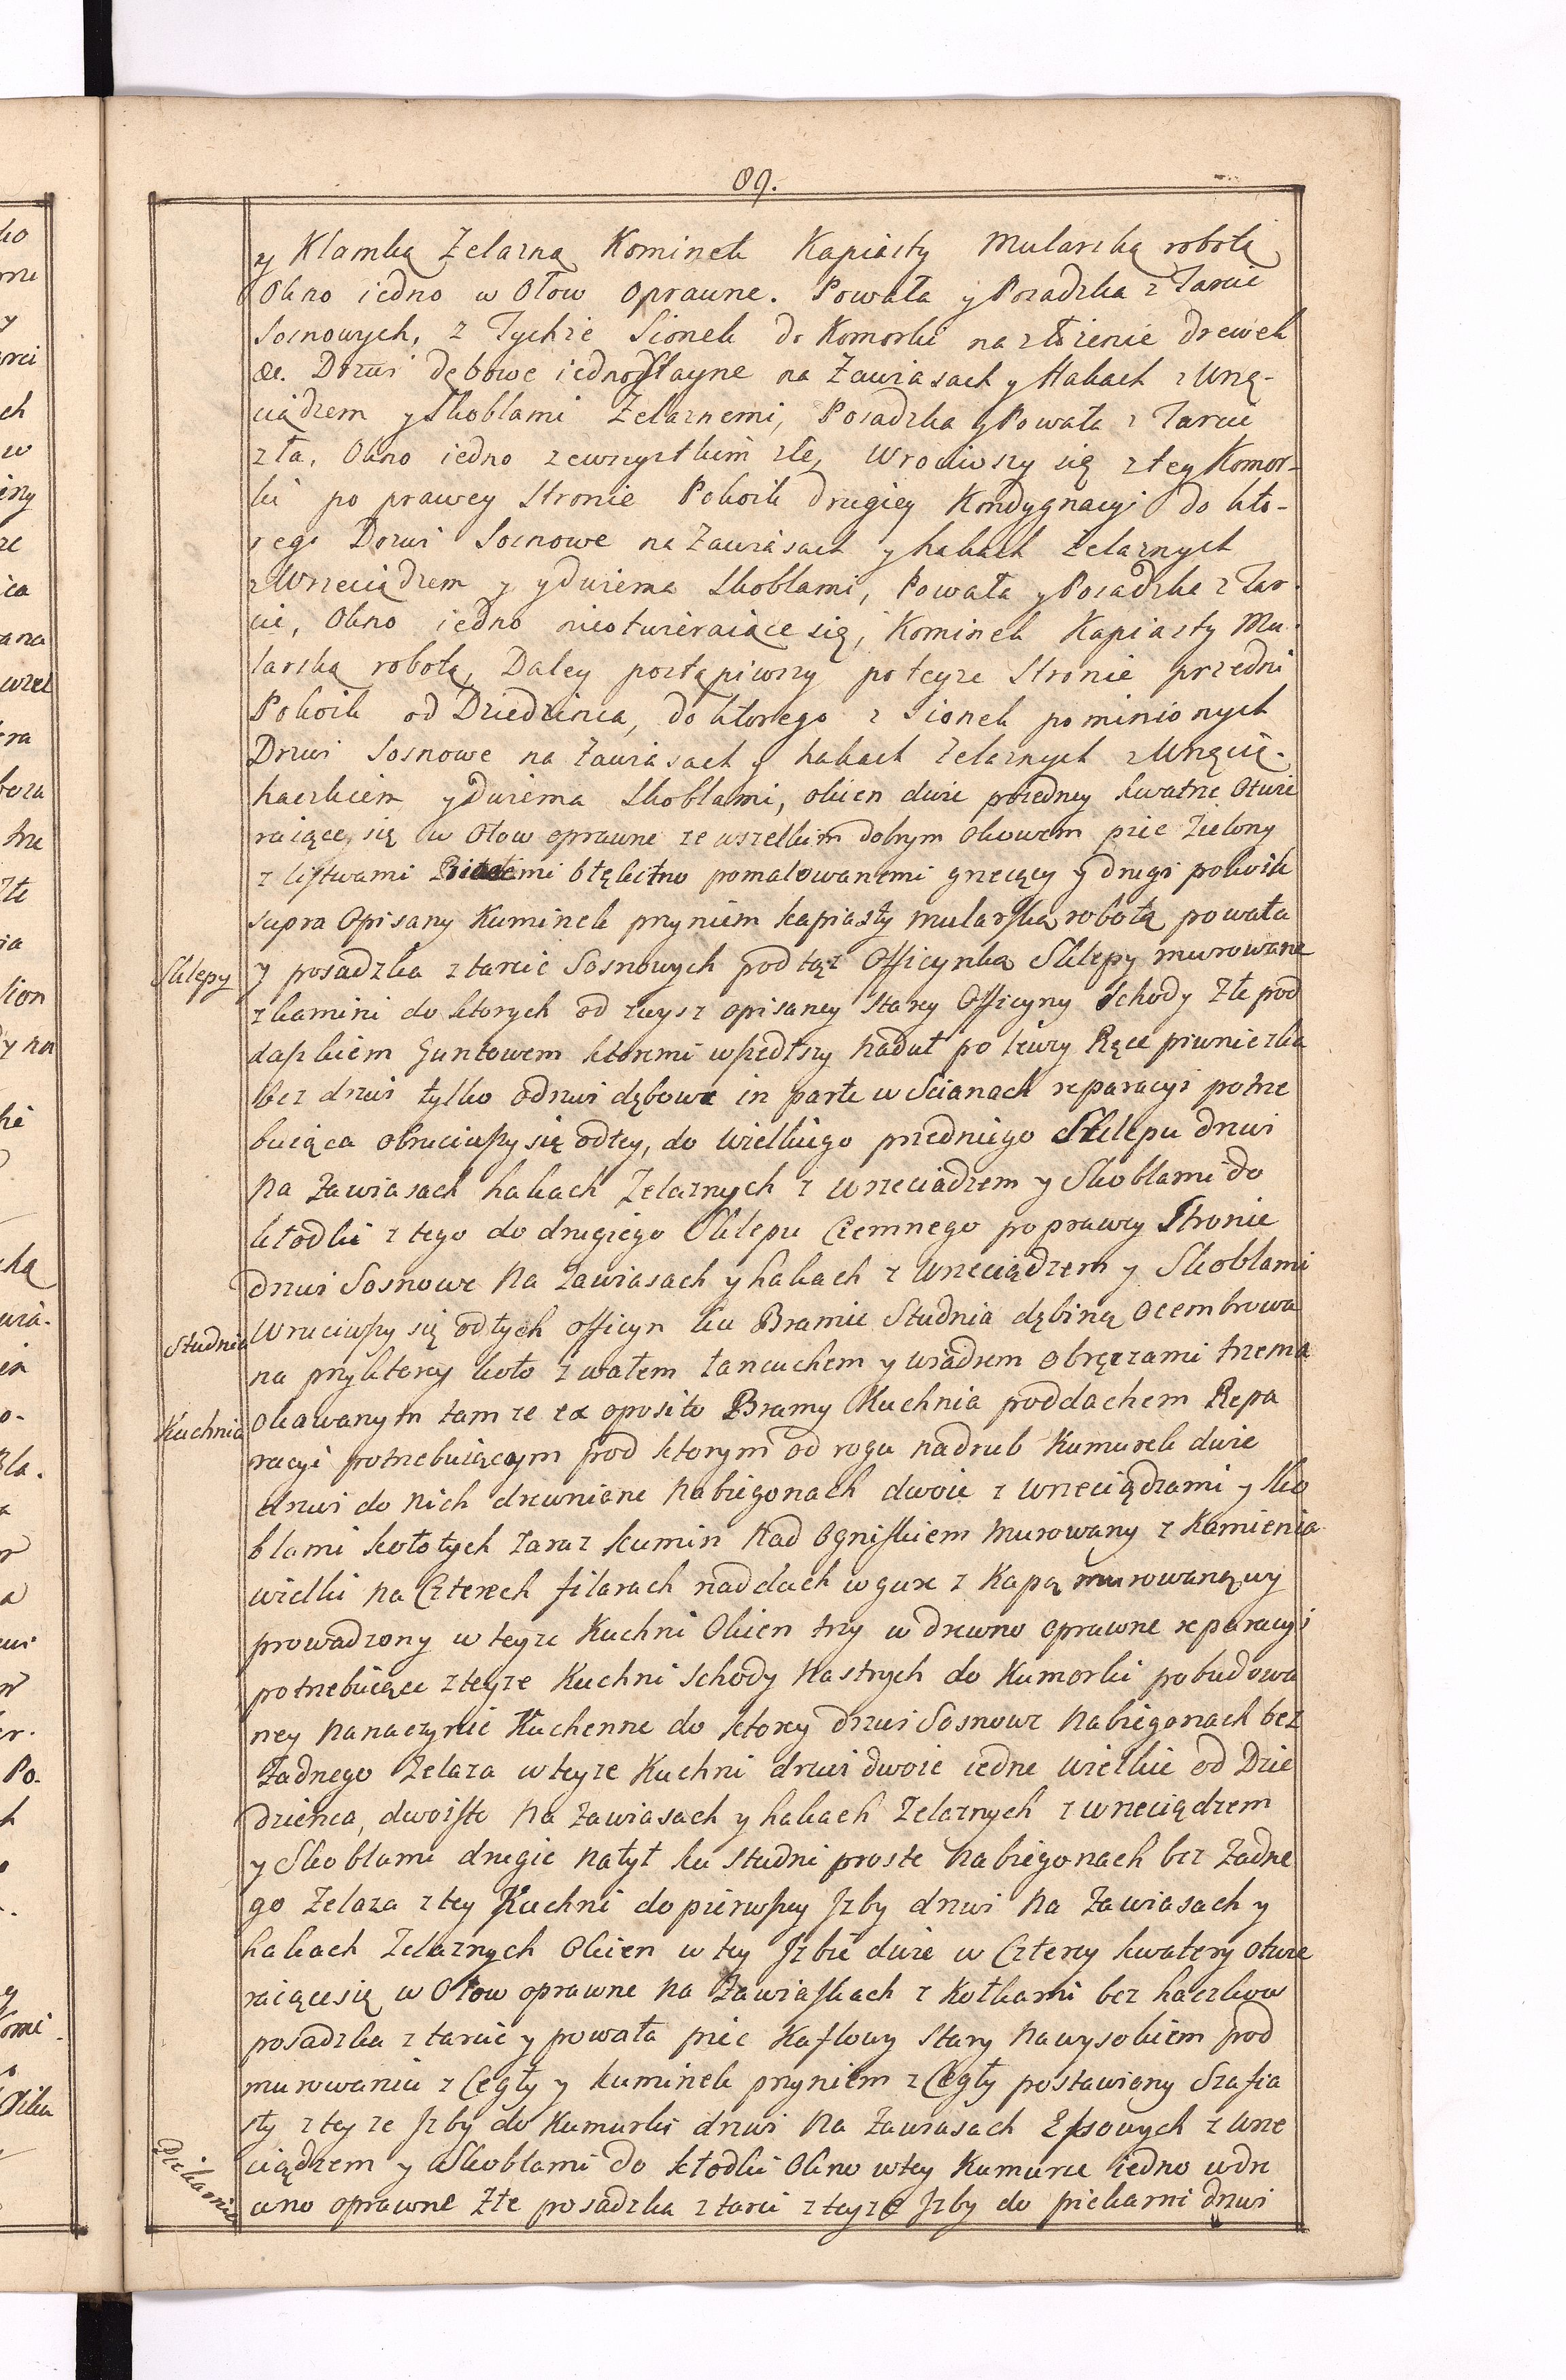 89.
y Klamką Zelazną Kominek Kapiasty Mularską robotą
Okno iedno w Ołow oprawne. Powała y Posadzka z Tarcic
Sosnowych, z Tychże Sionek do Komorki na złożenie drewek
&c. Drzwi dębowe iednostayne na Zawiasach y Hakach z Wrzę-
ciądzem y Skoblami Zelaznemi, Posadzka y Powała z Tarcic
zła, Okno iedno zewszystkim złe, Wrociwszy się z tey Komor-
ki po prawey Stronie Pokoik drugiey Kondygnacyi do kto-
rego Drzwi Sosnowe na Zawiasach y hakach żelaznych
z Wrzeciądzem y ydwiema Skoblami, Powała y Posadzka z Tar-
cic, Okno iedno nieotwieraiące się, Kominek Kapiasty Mu-
larską robotą, Daley postąpiwszy po teyze Stronie przedni
Pokoik od Dziedzinca, do ktorego z Sionek pominionych
Drzwi Sosnowe na Zawiasach y hakach żelaznych z Wrzęcią-
haczkiem y dwiema Skoblami, okien dwie po iedney kwatrze Otwie
raiące się w Ołow oprawne ze wszelkim dobrym okowem piec Zielony
z listwami Białemi błękitno pomalowanemi grzeiący y drugi pokoik
supra Opisany Kuminek przyniem kapiasty mularską robotą powała
Sklepy
y posadzka z tarcic Sosnowych pod tąż Officynką Sklepy murowane
z kamini do ktorych od zwysz opisaney Starey Officyny Schody Złe pod
daszkiem Guntowem ktoremi wszedłszy nadul po lewy Ręce piwniczka
bez drzwi tylko odrzwi dębowe in parte w Scianach reparacyi potrze
buiąca obruciwszy się odtey, do Wielkiego przedniego Sklepu drzwi
Na Zawiasach hakach Zelaznych z wrzeciadzem y Skoblami do
kłodki z tego do drugiego Sklepu Ciemnego po prawey Stronie
drzwi Sosnowe Na Zawiasach y hakach z wrzeciądzem y Skoblami
Studnia
Wruciwszy się od tych officyn ku Bramie Studnia dębiną Ocembrowa
na przyktorey koło z wałem łancuchem y wiadrem obręczami trzema
Kuchnia
Okawanym tamze ex oposito Bramy Kuchnia poddachem Repa
racyi potrzebuiącym pod ktorym od rogu nadrub Kumurek dwie
drzwi do nich drewniane Nabiegonach dwoie z wrzeciądzami y Sko
blami koło tych zaraz kumin Nad Ogniskiem Murowany z Kamienia
wielki na Czterech filarach naddach w gure z Kapą murowaną wy
prowadzony w teyze Kuchni Okien trzy w drewno oprawne reparacyi
potrzebuiące z teyze Kuchni Schody Nastrych do Kumorki pobudowa
ney na naczynie Kuchenne do ktorey drzwi Sosnowe Nabiegonach bez
Żadnego Zelaza w teyze Kuchni drzwi dwoie iedne wielkie od Dzie
dzienca, dwoiste Na Zawiasach y hakach Zelaznych z wrzeciądzem
y Skoblami drugie Natył ku Studni proste Nabiegonach bez Żadne
go Zelaza z tey Kuchni do pierwszey Jzby drzwi Na Zawiasach y
hakach Zelaznych Okien w tey Jzbie dwie w Cztery kwatery otwie
raiące się w Ołow oprawne Na Zawiaskach z Kołkami bez haczkow
posadzka z tarcic y powała piec Kaflowy Stary Nawysokiem pod
murowaniu z Cegły y kuminek przyniem z Cegły postawiony Szafia
sty z teyze Jzby do Kumurki drzwi Na Zawiasach Essowych z wrze
ciądzem y Skoblami do kłodki Okno w tey Kumurce iedno w dre
Piekarnia
wno oprawne Złe posadzka z tarcic z teyze Jzby do piekarni drzwi